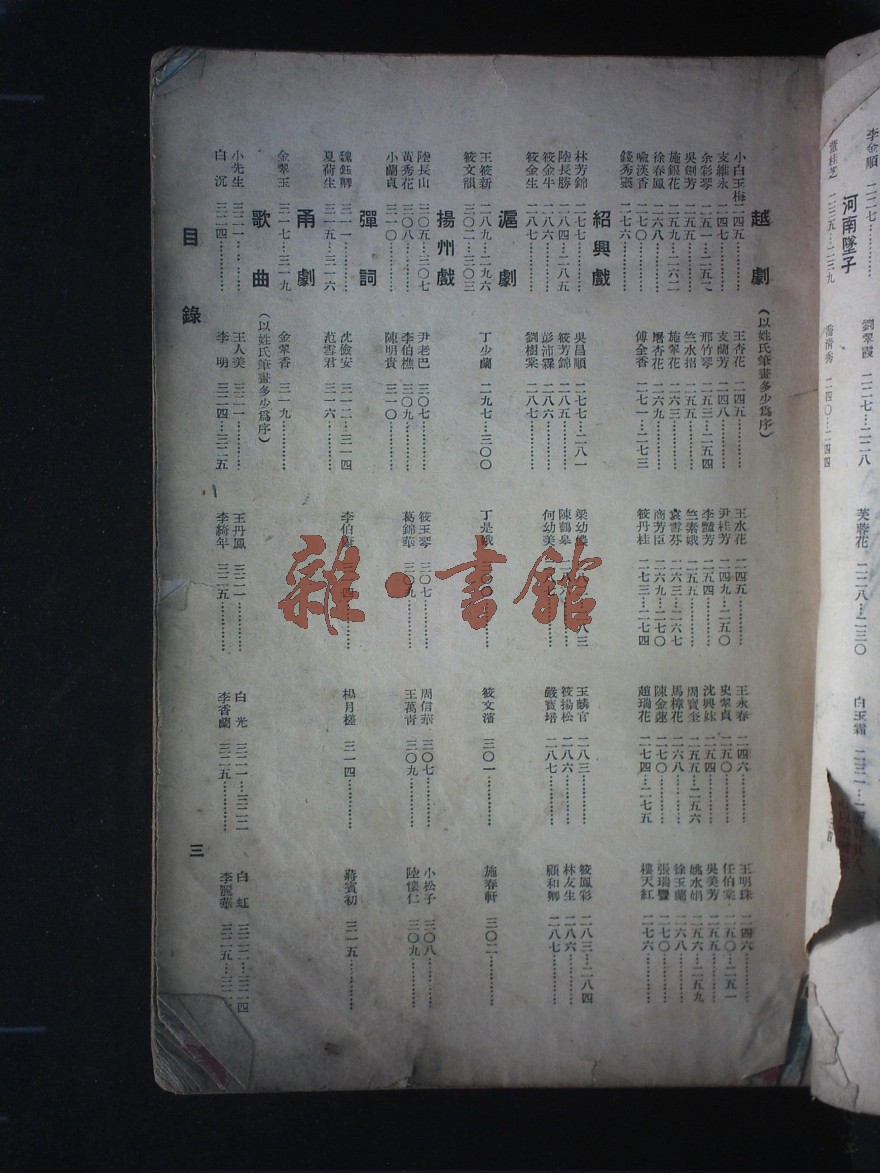 李金順　二二七…………　劉翠霞　二二七…二二八　芙蓉花　二二八…二三〇　白玉霜
河南墜子
董桂芝　二三五…二三九　喬清秀　二四〇…二四四
越劇（以姓氏筆畫多少為序）
小白玉梅二四五…………　王杏花　二四五…………　王水花　二四五…………　王永春　二四六…………　王明珠　二四六…………
支維永　二四七…………　支蘭芳　二四八…………　尹桂芳　二四九…二五〇　史翠貞　二五〇…………　任伯棠　二五〇…二五一
余彩琴　二五一…二五二　邢竹琴　二五三…二五四　李豔芳　二五四…………　沈興妹　二五四…………　吳美芳　二五五…………
吳劍芳　二五五…………　竺水招　二五五…………　竺素娥　二五五…………　周寶奎　二五五…二五六　姚水娟　二五六…二五九
施銀花　二五九…二六二　施翠花　二六三…………　袁雪芬　二六三…二六七　馬樟花　二六八…………　徐玉蘭　二六八…………
徐春鳳　二六八…………　屠杏花　二六九…………　商芳臣　二六九…二七〇　陳金蓮　二七〇…………　張瑞豐　二七〇…………
喩漢香　二七〇…………　傅全香　二七一…二七三　筱丹桂　二七三…二七四　趙瑞花　二七四…二七五　樓天紅　二七六…………
錢秀靈　二七六…………
紹興戲
林芳錦　二七七…………　吳昌順　二七七…二八一　梁幼　王麟官　二八三…………　筱鳳彩　二八三…二八四
陸長勝　二八四…二八五　筱芳錦　二八五…………　陳鶴皋　筱揚松　二八六…………　林友生　二八六…………
筱金牛　二八六…………　彭沛霖　二八六…………　何幼美　嚴寶培　二八七…………　顧和卿　二八七…………
筱金生　二八七…………　劉樹棠　二八七…………
滬劇
王筱新　二八九…二九六　丁少蘭　二九七…三〇〇　丁是娥　筱文濱　三〇一…………　施春軒　三〇二…………
筱文韻　三〇二…三〇三
揚州戲
陸長山　三〇五…三〇七　尹老巴　三〇七…………　筱玉琴　三〇七…………　周信華　三〇七…………　小松子　三〇八…………
萬秀花　三〇八…………　李伯樵　三〇九…………　葛錦華　三〇九…………　王萬靑　三〇九…………　陸懷仁　三〇九…………
小蘭貞　三一〇…………　陳明貴　三一〇…………
彈詞
魏鈺卿　三一一…………　沈儉安　三一二…三一四　李伯　楊月槎　三一四…………　蔣賓初　三一五…………
夏荷生　三一五…三一六　范雪君　三一六…………
甬劇
金翠玉　三一七…三一九　金翠香　三一九…………
歌曲（以姓氏筆畫多少為序）
小先生　三二一…………　王人美　三二一…………　王丹鳳　三二一…………　白光　三二一…三二二　白虹　三二二…三二四
白沉　三二四…………　李明　三二四…三二五　李綺年　三二五…………　李香蘭　三二五…………　李麗華　三二五
目錄
三
雜·書館